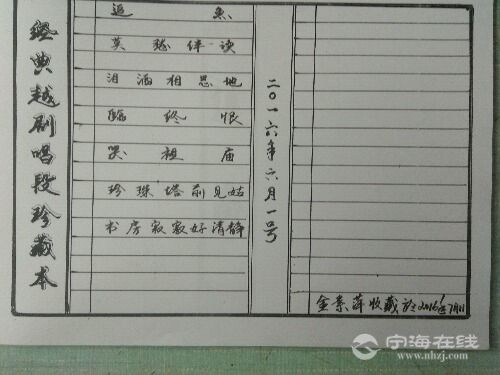 经典越剧唱段珍藏本
追鱼
莫愁伴读
泪洒相思地
临终恨
哭祖庙
珍珠塔前见姑
书房寂寂好清静
二0一六年六月一号
金素萍收藏於2016年7月11
宁海在线
www.nhzj.com